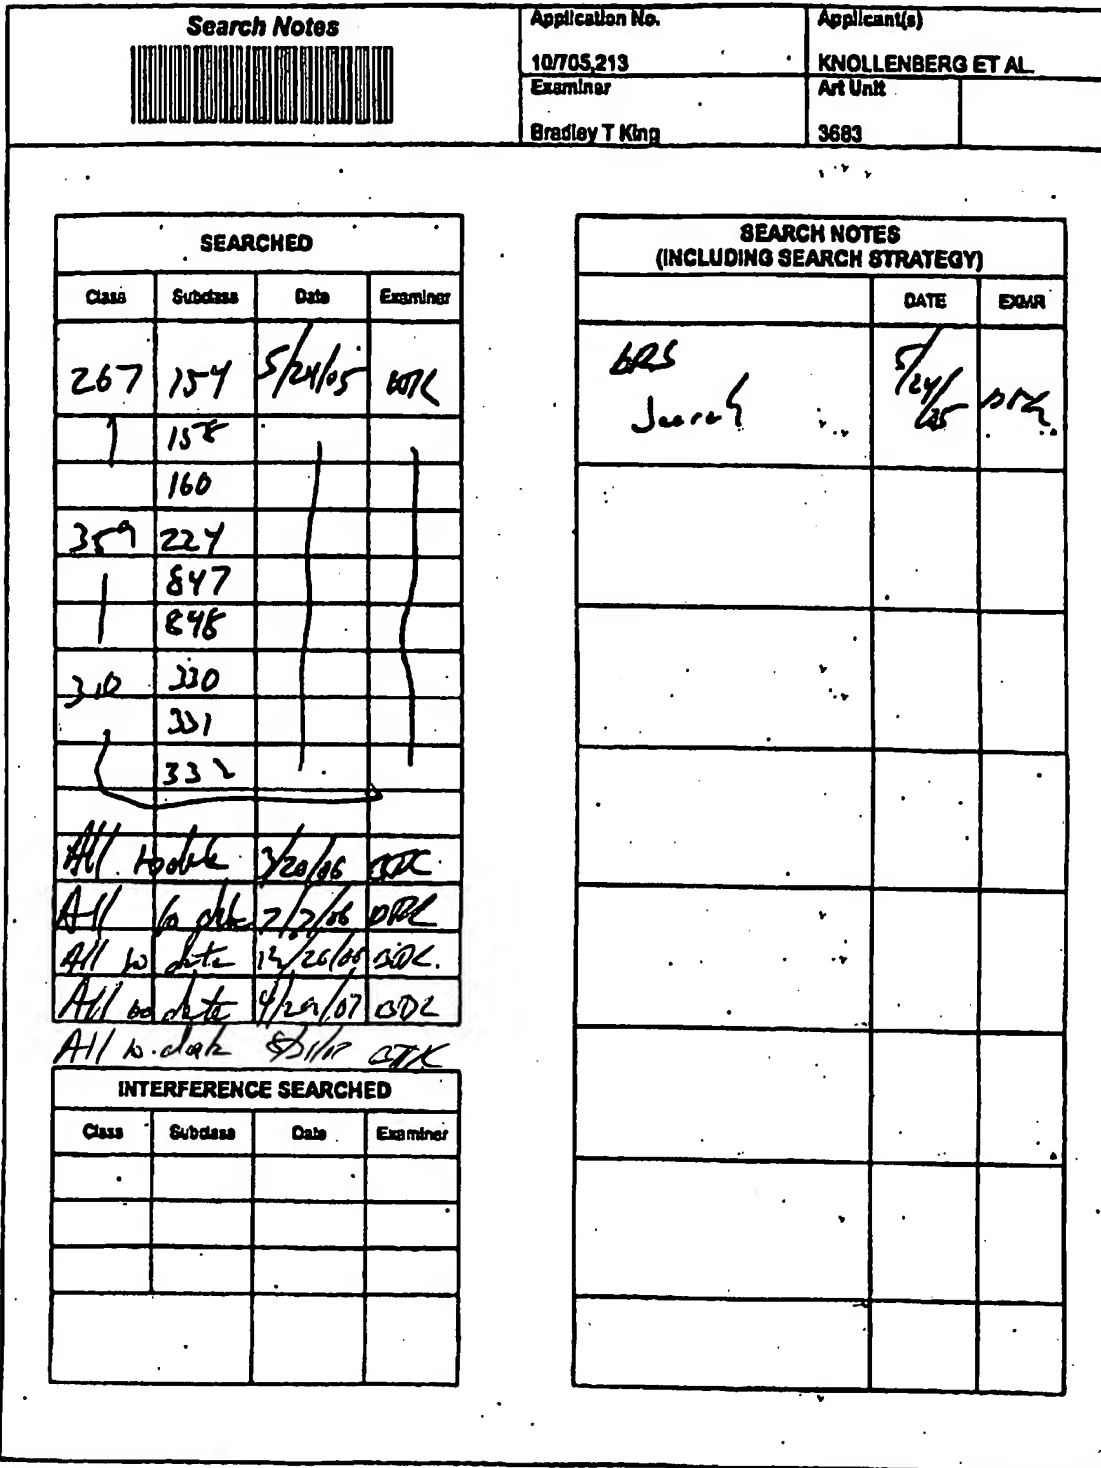 Search Notes
Application No.
Applicant(s)
10/705,213
KNOLLENBERG ET AL.
Examiner
Art Unit
Bradley T King
3683
SEARCHED
Class Subclass Date Examiner
267 154 5/24/05 BTK
158
160
359 224
847
848
310 330
331
332
All to date 3/20/06 BTK
All to date 7/7/06 BTK
All to date 12/26/06 BTK
All to date 4/29/07 BTK
All to date BTK
INTERFERENCE SEARCHED
Class Subclass Date Examiner
SEARCH NOTES
(INCLUDING SEARCH STRATEGY)
DATE EXMR
Search 5/24/05 BTK